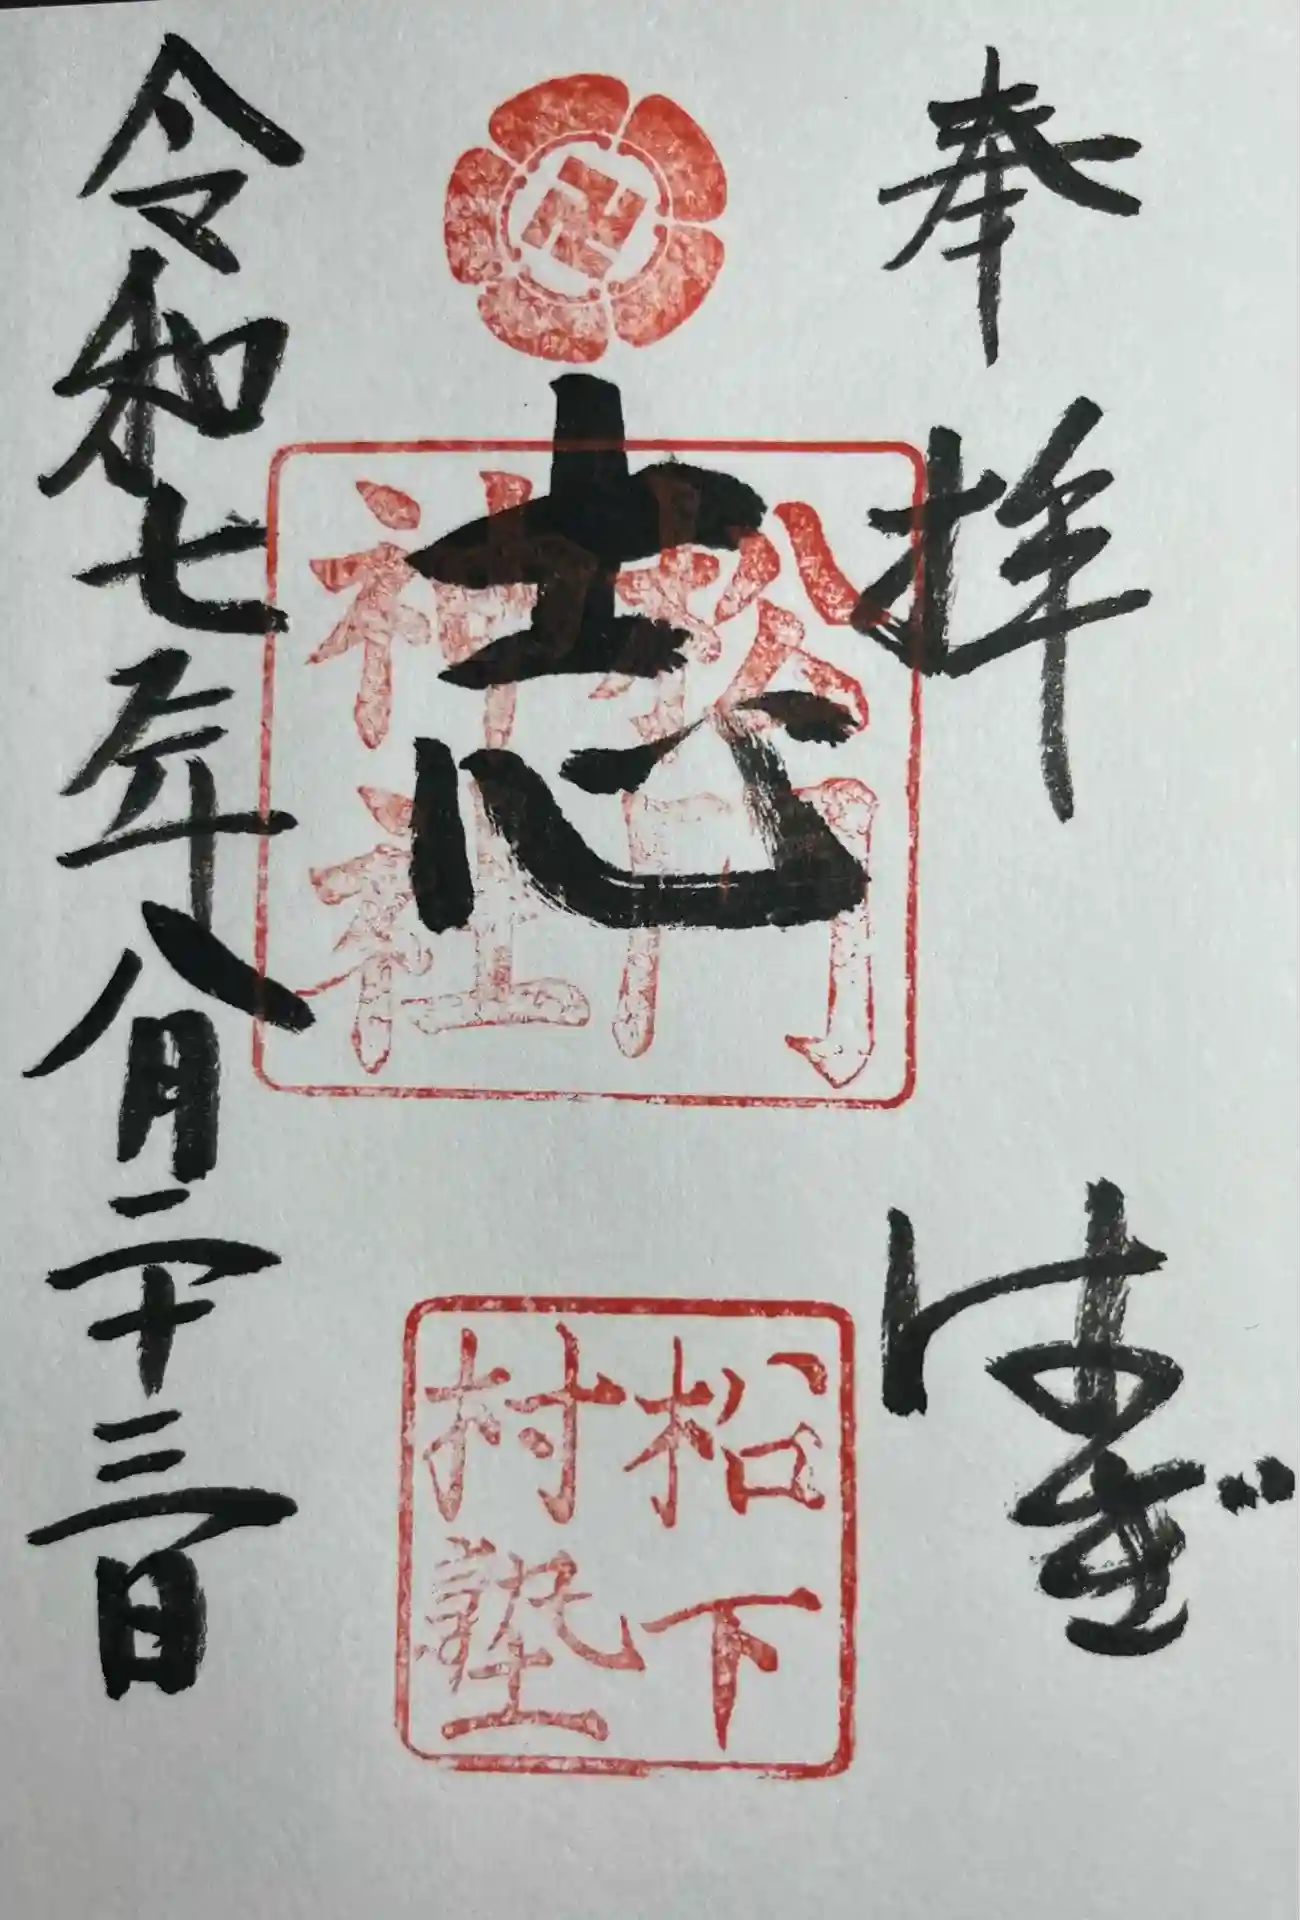 奉拝
はぎ
志
松門
神社
松下
村塾
令和七年八月二十三日